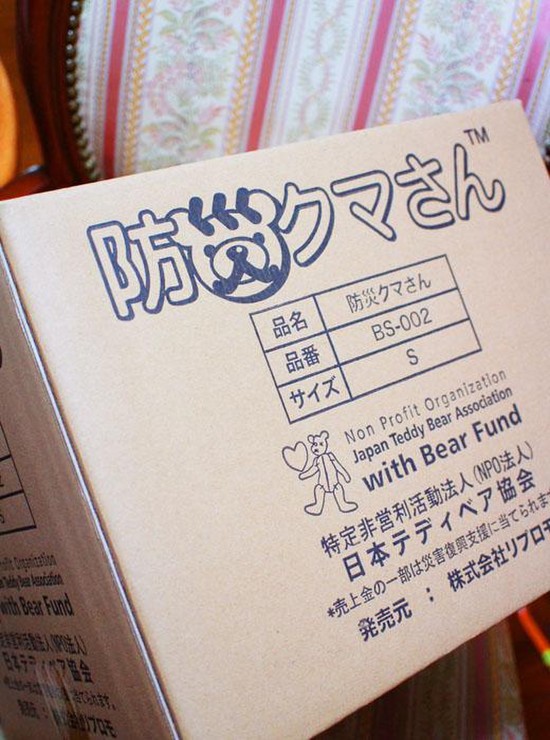 防災クマさん™
品名 防災クマさん
品番 BS-002
サイズ S
Non Profit Organization
Japan Teddy Bear Association
with Bear Fund
特定非営利活動法人(NPO法人)
日本テディベア協会
*売上金の一部は災害復興支援に当てられま
発売元 : 株式会社リプロモ
Non Profit Organization
Japan Teddy Bear Association
with Bear Fund
特定非営利活動法人(NPO法人)
日本テディベア協会
当てられます。
発売元 : 株式会社リプロモ